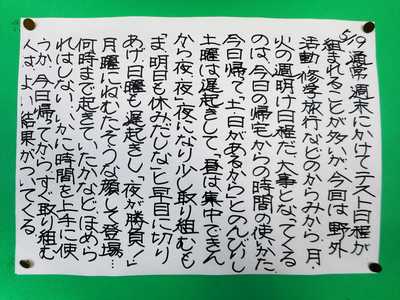 5/19 通常、週末にかけてテスト日程が
組まれることが多いが、今回は野外
活動・修学旅行などのからみから、月・
火の週明け日程だ。大事となってくる
のは、今日の帰宅からの時間の使いかた
今日帰って「土日があるから」とのんびりし
土曜は遅起きして、昼は集中できん
から夜、夜」夜になり少し取り組むも
「ま、明日も休みだしな」と早目に切り
あげ、日曜も遅起きし、「夜が勝負！」
月曜にねむたそうな顔して登場…
何時まで起きていたかなど、ほめら
れはしない。いかに時間を上手に使
うか。今日帰ってからすぐ取り組む
人はよい結果がついてくる